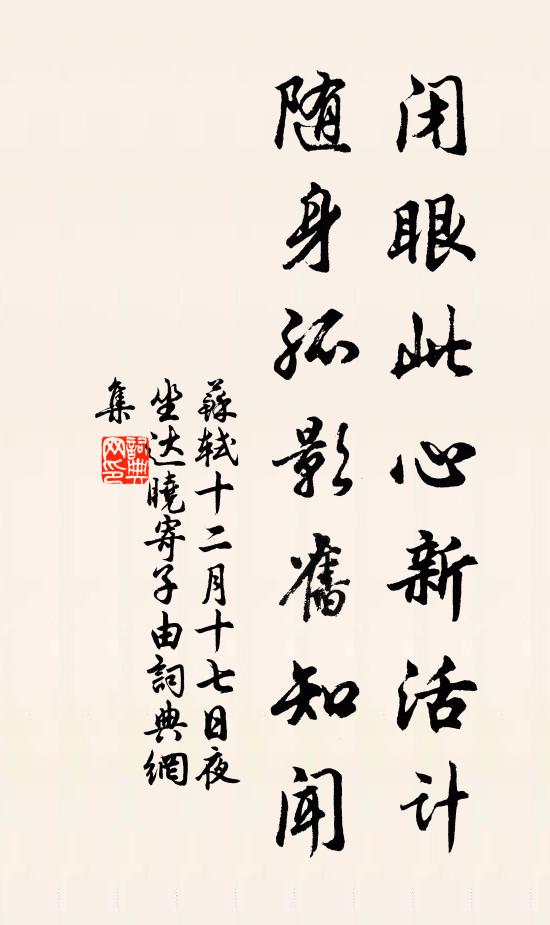 闭眼此心新活计
随身孤影舊知闻
蘇軾十二月十七日夜
坐达曉寄子由詞典網
集
詞典